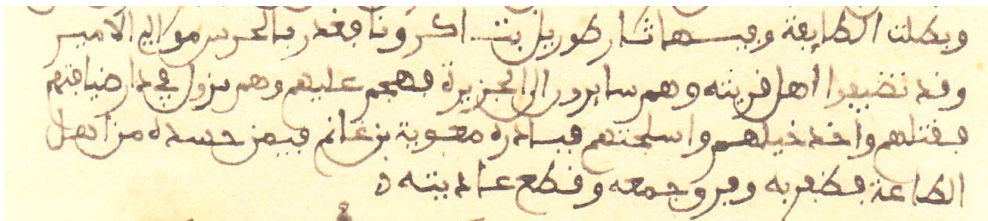 وبطلت الطايفة وفيها ثار طوريل بتاكرونا فغدر موالي الامير
وقد تضيفوا اهل قريته وهم سايرون الى الجزيرة فهجم عليهم وهم نزول في دار ضيافتهم
فقتلهم واخذ خيلهم واسلحتهم فبادره معوية بن غانم فيمن حشده من اهل
الطاعة فظفر به وفرق جمعه وقطع عاديته